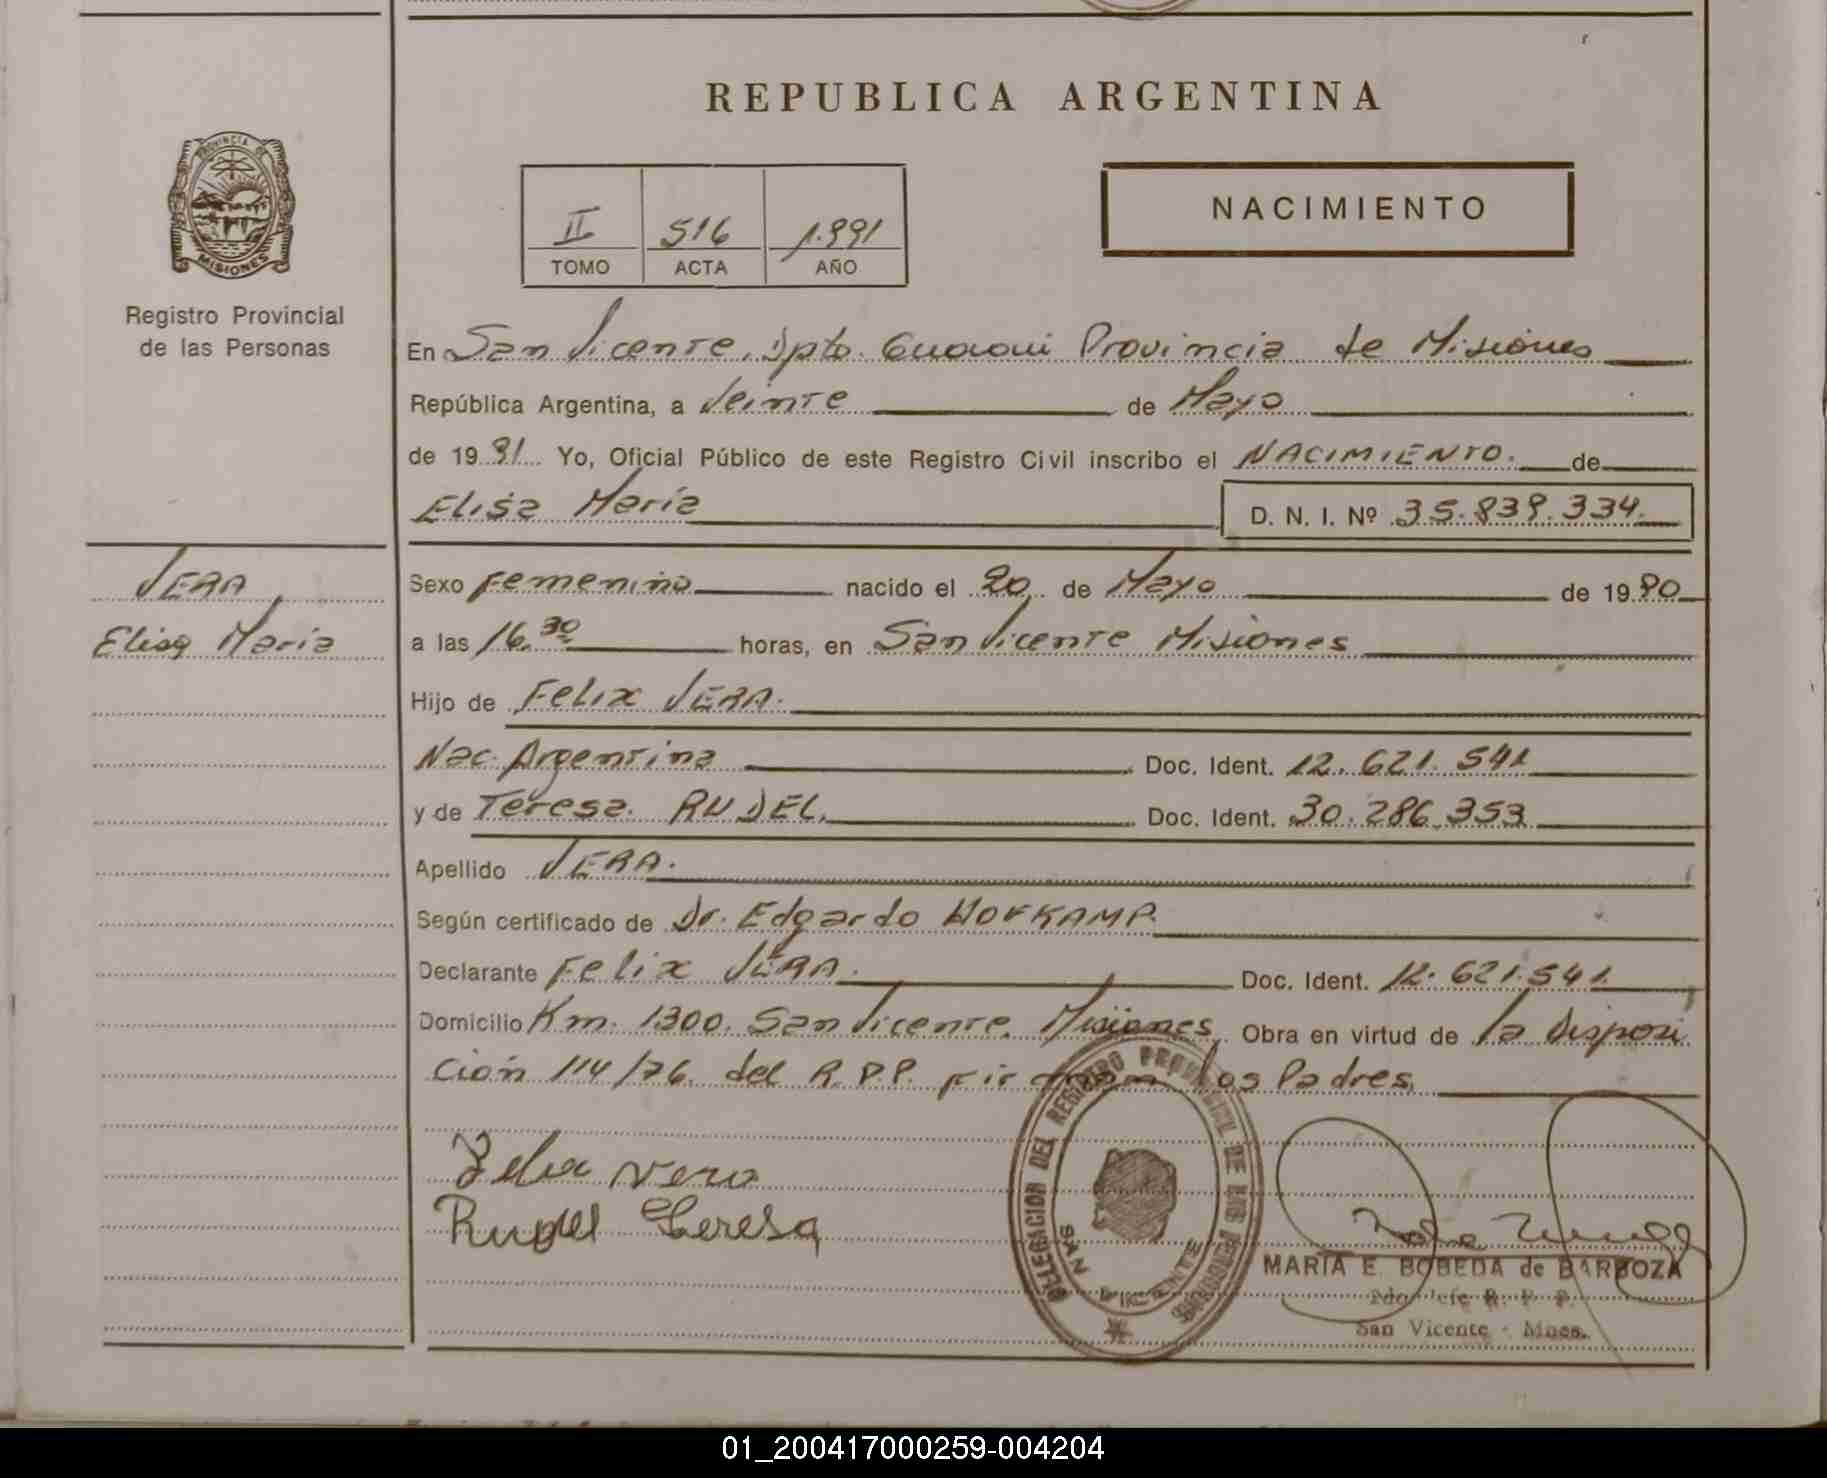 REPUBLICA ARGENTINA
PROVINCIA DE
MISIONES
Registro Provincial
de las Personas
NACIMIENTO
II 516 1.991
TOMO ACTA AÑO
En San Vicente, Dpto. Guaraní Provincia de Misiones
República Argentina, a Veinte de Mayo
de 1991 Yo, Oficial Público de este Registro Civil inscribo el NACIMIENTO. de
Elisa María D. N. I. Nº 35.839.334.
VERA,
Elisa María
Sexo Femenino nacido el 20 de Mayo de 1990
a las 16.30 horas, en San Vicente Misiones
Hijo de Felix VERA.
Nac. Argentina Doc. Ident. 12.621.541
y de Teresa. RUDEL. Doc. Ident. 30.286.353
Apellido VERA.
Según certificado de Dr. Edgardo HOFKAMP.
Declarante Felix VERA. Doc. Ident. 12.621.541.
Domicilio Km. 1300. San Vicente. Misiones. Obra en virtud de la Disposi
ción 114/76. del R.P.P. firman los Padres.
Felix Vera
Rudel Teresa
DELEGACION DEL REGISTRO PROVINCIAL DE LAS PERSONAS
SAN VICENTE
MARIA E. BOBEDA de BARBOZA
2da Jefe R. P. P.
San Vicente - Mnes.
01_200417000259-004204